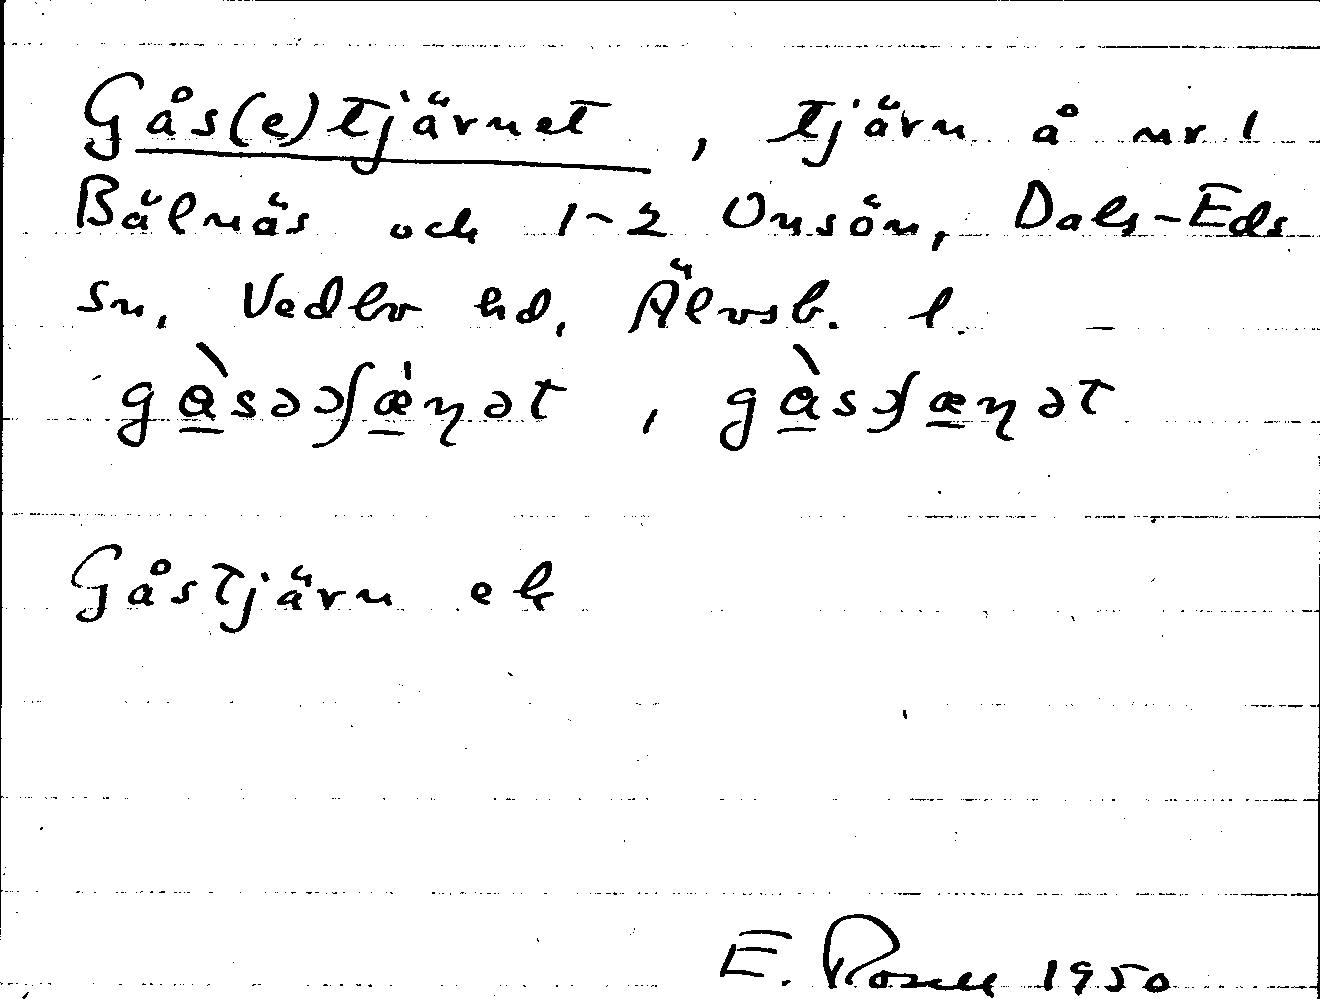 Gås(e)tjärnet, tjärn å nr 1
Bälnäs och 1-2 Onsön, Dals-Eds
sn, Vedbo hd, Älvsb. l.
gàsəɔʃæ̀ꞃət, gàsɔʃæꞃət
Gåstjärn ek
E. Rosell 1950